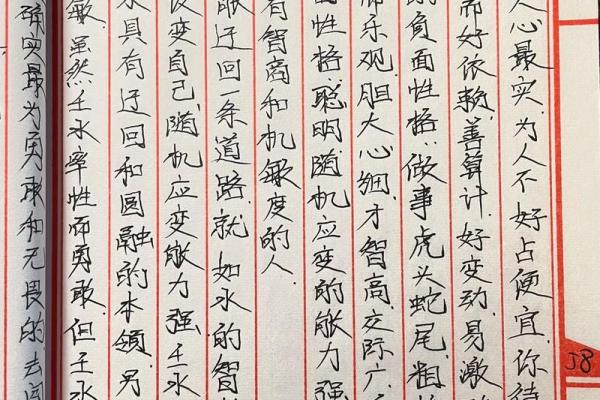 人心最实.为人不好占便宜.你待
而好依赖.善算计.好变动.易激
的负面性格:做事虎头蛇尾.粗
而乐观.胆大心细.才智高.交际广.
性格:聪明随机应变的能力强
有智商和机敏度的人.
迂回一条道路.就如水的智
变自己.随机应变能力强.壬水
具有迂回和圆融的本领.另
敏.虽然壬水率性而勇敢.但壬水
确实最为勇敢和无畏的去闯
J8